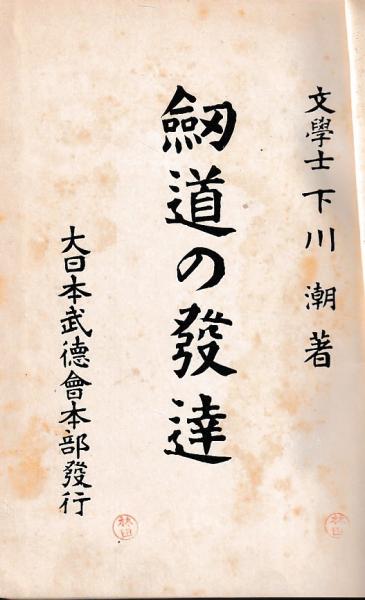 文學士 下川 潮 著
劒道の發達
大日本武德會本部發行
林田
林田